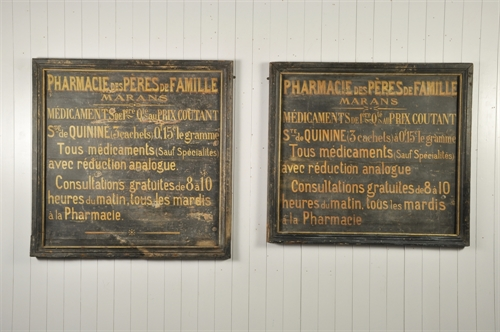 PHARMACIE DES PÈRES DE FAMILLE
MARANS
MÉDICAMENTS DE 1re Qté AU PRIX COUTANT
Ste DE QUININE (3 cachets) à 0.15 le gramme
Tous médicaments (Sauf Spécialités)
avec réduction analogue.
Consultations gratuites de 8 à 10
heures du matin, tous les mardis
à la Pharmacie.
PHARMACIE DES PÈRES DE FAMILLE
MARANS
MÉDICAMENTS DE 1re Qté AU PRIX COUTANT
Ste DE QUININE (3 cachets) à 0.15 le gramme
Tous médicaments (Sauf Spécialités)
avec réduction analogue
Consultations gratuites de 8 à 10
heures du matin, tous les mardis
à la Pharmacie